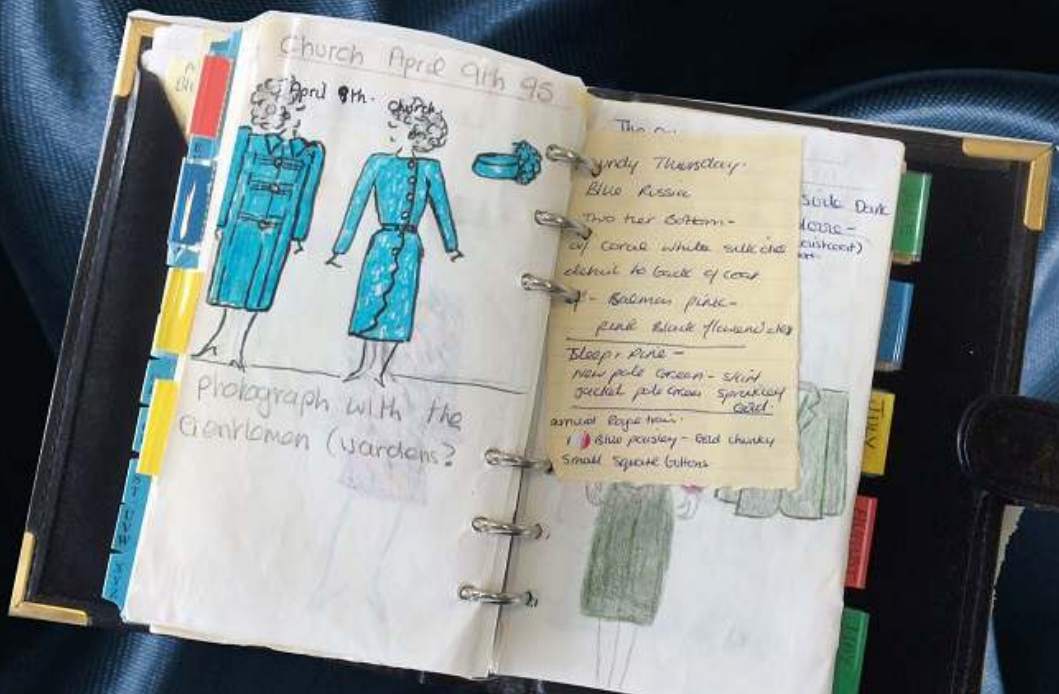 Church April 9th 95
April 9th. church
photograph with the
Gentlemen (wardens?
undy Thursday.
Blue Russia
Two tier Bottom -
w/ coral white silk
detail to back of coat
- Balman pink -
pink Black flowered
Sleep r Pine -
New pale Green - skirt
Jacket pale Green sprinkley
Gold.
1 Blue paisley - Gold chunky
small square buttons
side Dark
waistcoat)
ST
UVW
XYZ
JULY